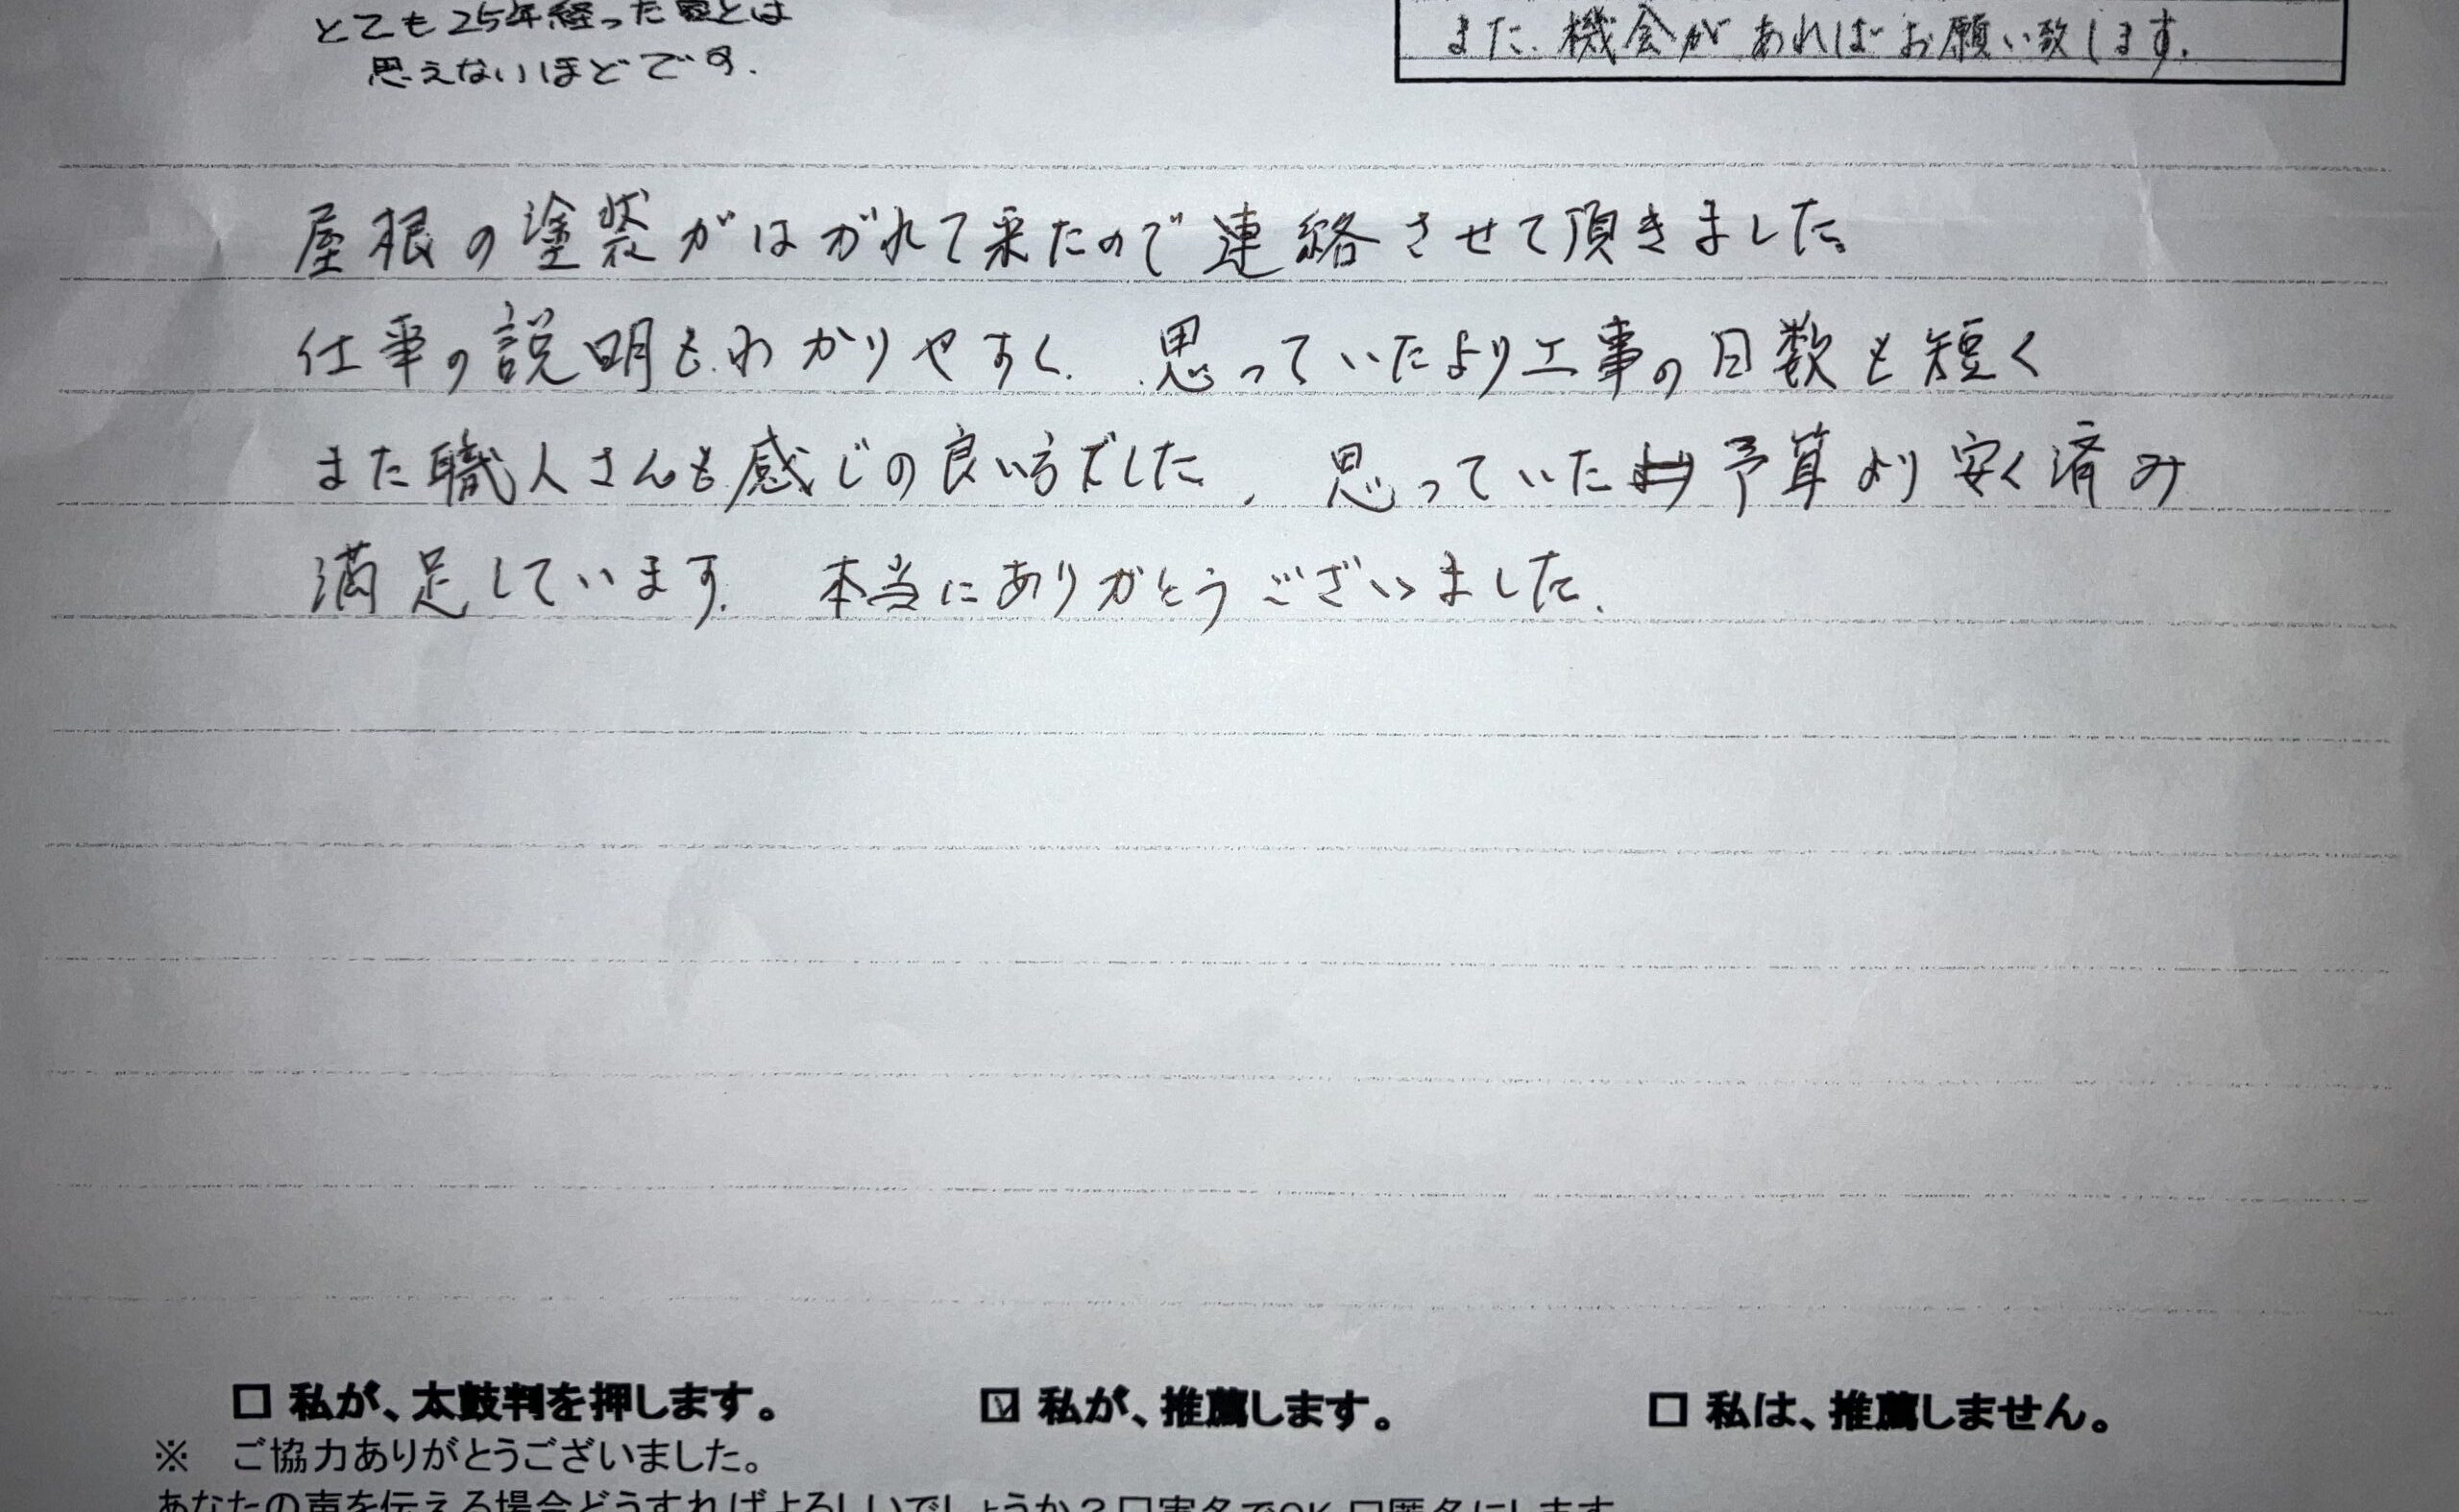 とても25年経った家とは
思えないほどです.
また、機会があればお願い致します。
屋根の塗装がはがれて来たので連絡させて頂きました。
仕事の説明もわかりやすく、思っていたより工事の日数も短く
また職人さんも感じの良い方でした、思っていた予算より安く済み
満足しています. 本当にありがとうございました.
☐ 私が、太鼓判を押します。 ☑ 私が、推薦します。 ☐ 私は、推薦しません。
※ ご協力ありがとうございました。
あなたの声を伝える場合どうすればよろしいでしょうか?口実名でOK 口匿名にします